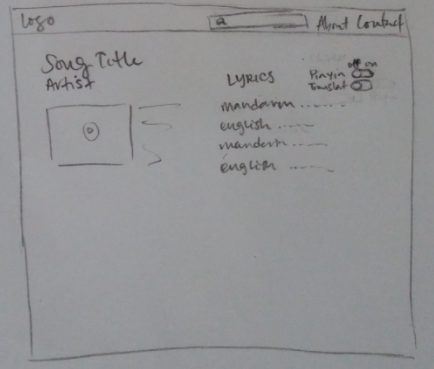 Logo
About Contact
Song Title
Artist
LYRICS
off on
Pinyin
Translat
mandarin
english
mandarin
english